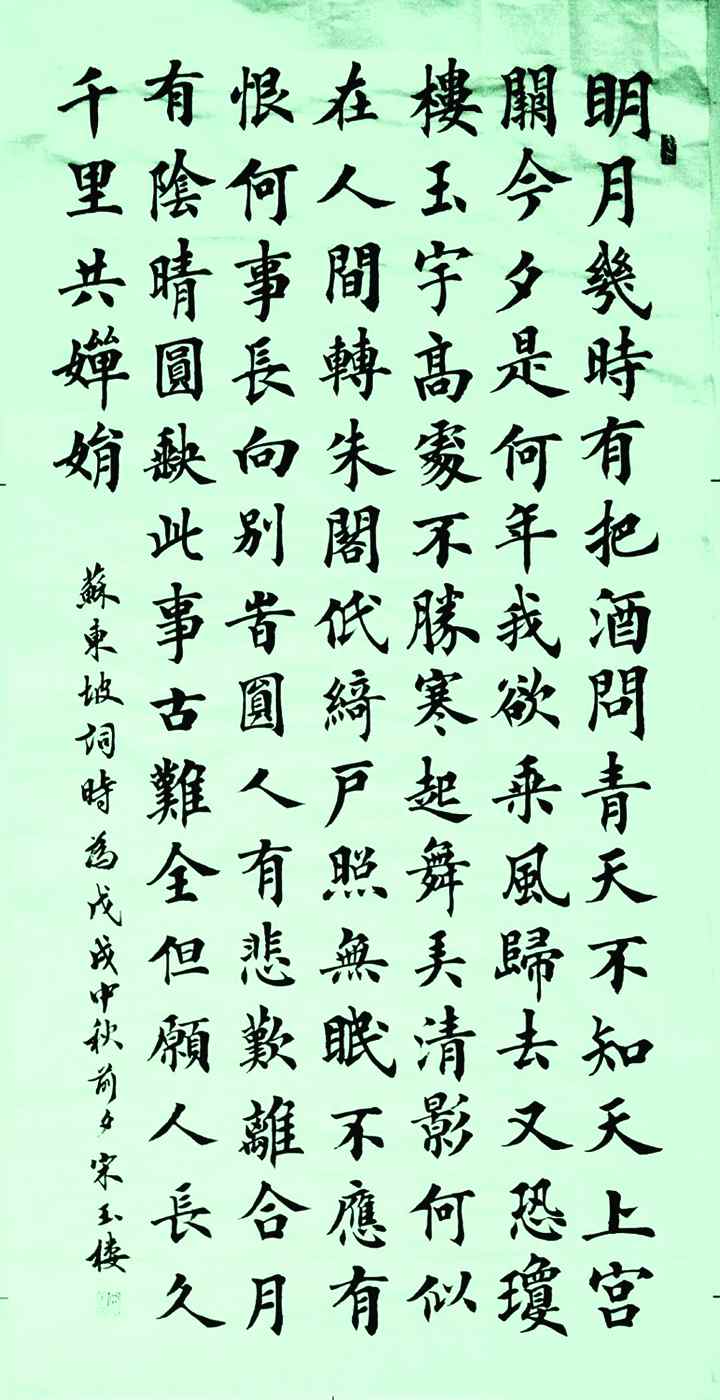 明月幾時有把酒問青天不知天上宮
闕今夕是何年我欲乘風歸去又恐瓊
樓玉宇髙處不勝寒起舞弄清影何似
在人間轉朱閣低綺戶照無眠不應有
恨何事長向別旹圓人有悲歡離合月
有陰晴圓缺此事古難全但願人長久
千里共嬋娟
蘇東坡詞時為戊戌中秋前夕宋玉樓